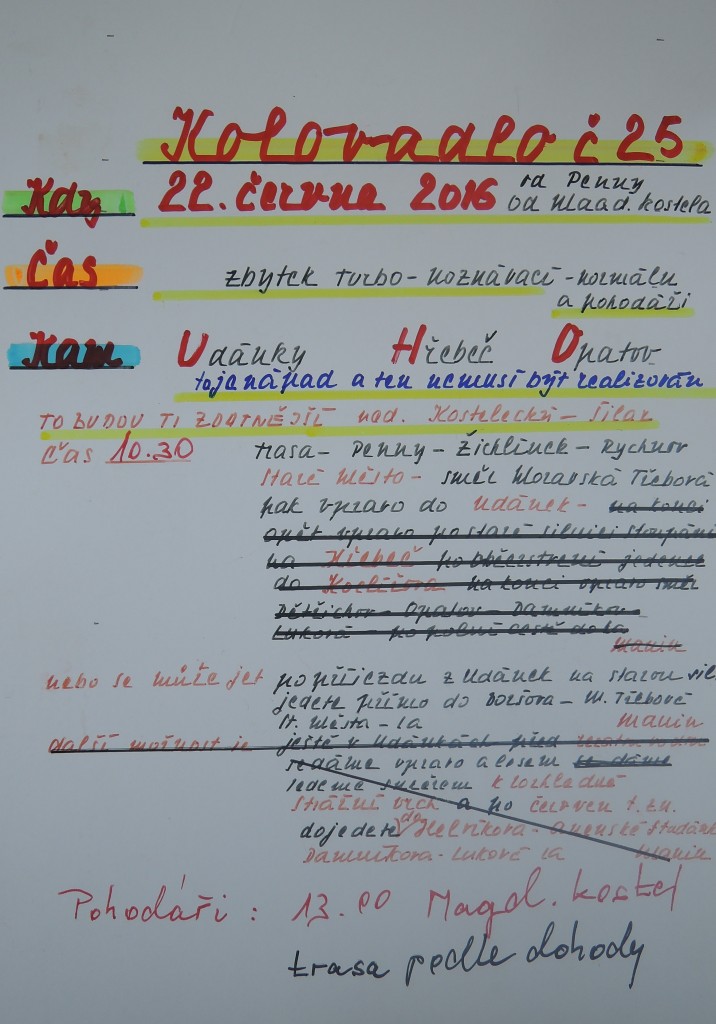 Kolovadlo č 25
Kdy 22. června 2016 od Penny
od Maad. kostela
Čas zbytek turbo-poznávací - normálu
a pohodáři
Kam Udánky Hřebeč Opatov
to je nápad a ten nemusí být realizován
TO BUDOU TI ZDATNĚJŠÍ nad. Kostelecký - Šilar
Čas 10.30 trasa - Penny - Žichlínek - Rychnov
Staré Město - směr Moravská Třebová
pak vpravo do Udánek - na konci
opět vpravo po staré silnici stoupání
na Hřebeč po občerstvení jedeme
do Koclířova na konci vpravo směr
Dětřichov - Opatov - Damníkov
Luková - po polní cestě do La
Manin
nebo se může jet po příjezdu z Udánek na starou sil
jedete přímo do Boršova - M. Třebové
St. Města - La Manin
další možnost je ještě v Udánkách před
se dáme vpravo a lesem se dáme
jedeme směrem k rozhledně
Strážní vrch a po červen t. zn.
dojedete do Helvíkova - Anenská Studánk
Damníkova - Luková La Manin
Pohodáři : 13.00 Magd. kostel
trasa podle dohody